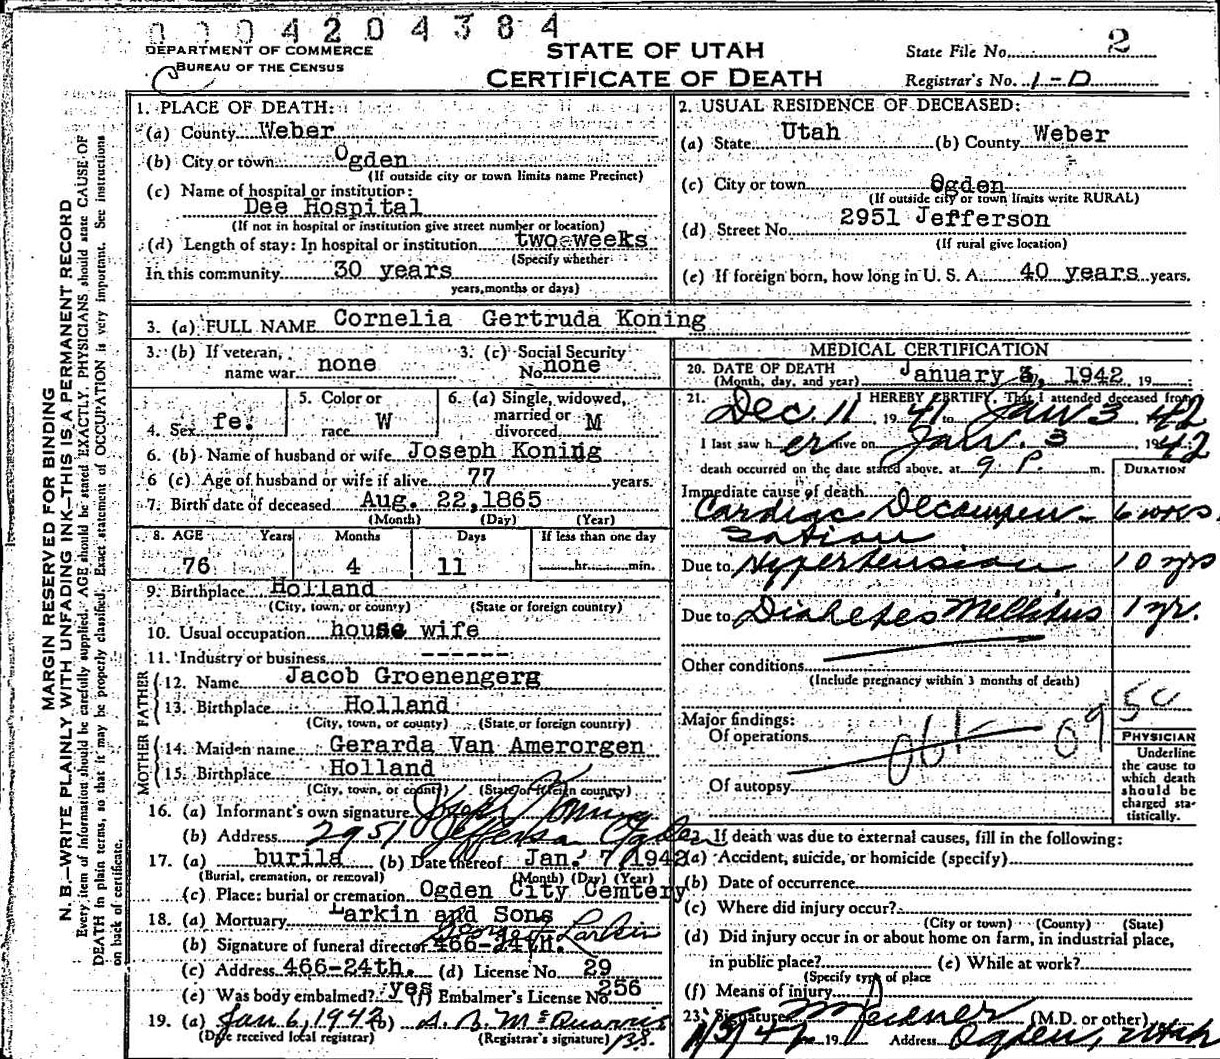 0004204384
DEPARTMENT OF COMMERCE
BUREAU OF THE CENSUS
STATE OF UTAH
CERTIFICATE OF DEATH
State File No. 2
Registrar's No. 1-D
MARGIN RESERVED FOR BINDING
N. B.—WRITE PLAINLY WITH UNFADING INK—THIS IS A PERMANENT RECORD
Every item of information should be carefully supplied. AGE should be stated EXACTLY. PHYSICIANS should state CAUSE OF
DEATH in plain terms, so that it may be properly classified. Exact statement of OCCUPATION is very important. See instructions
on back of certificate.
1. PLACE OF DEATH:
(a) County Weber
(b) City or town Ogden
(If outside city or town limits name Precinct)
(c) Name of hospital or institution:
Dee Hospital
(If not in hospital or institution give street number or location)
(d) Length of stay: In hospital or institution two weeks
(Specify whether
In this community 30 years
years, months or days)
2. USUAL RESIDENCE OF DECEASED:
(a) State Utah (b) County Weber
(c) City or town Ogden
(If outside city or town limits write RURAL)
(d) Street No. 2951 Jefferson
(If rural give location)
(e) If foreign born, how long in U. S. A. 40 years years.
3. (a) FULL NAME Cornelia Gertruda Koning
3. (b) If veteran, name war none
3. (c) Social Security No. none
4. Sex fe.
5. Color or race W
6. (a) Single, widowed, married or divorced M
6. (b) Name of husband or wife Joseph Koning
6 (c) Age of husband or wife if alive 77 years.
7. Birth date of deceased Aug. 22, 1865
(Month) (Day) (Year)
8. AGE Years Months Days If less than one day
76 4 11 hr. min.
9. Birthplace Holland
(City, town, or county) (State or foreign country)
10. Usual occupation house wife
11. Industry or business ------
FATHER
12. Name Jacob Groenengerg
13. Birthplace Holland
(City, town, or county) (State or foreign country)
MOTHER
14. Maiden name Gerarda Van Amerorgen
15. Birthplace Holland
(City, town, or county) (State or foreign country)
16. (a) Informant's own signature Joseph Koning
(b) Address 2951 Jefferson Ogden
17. (a) burila (b) Date thereof Jan. 7, 1942
(Burial, cremation, or removal) (Month) (Day) (Year)
(c) Place: burial or cremation Ogden City Cemtery
18. (a) Mortuary Larkin and Sons
(b) Signature of funeral director 466-24th. Larkin
(c) Address 466-24th. (d) License No. 29
(e) Was body embalmed? yes (f) Embalmer's License No. 256
19. (a) Jan 6, 1942 (b)
(Date received local registrar) (Registrar's signature)
MEDICAL CERTIFICATION
20. DATE OF DEATH
(Month, day, and year) January 3, 1942, 19
21. I HEREBY CERTIFY, That I attended deceased from
Dec 11, 19 41 to Jan 3 42
I last saw her alive on Jan. 3 1942
death occurred on the date stated above, at 9 P. m.
DURATION
Immediate cause of death
Cardiac Decompen-
sation
Due to Hypertension 10 yrs
Due to Diabetes Mellitus 1 yr.
Other conditions
(Include pregnancy within 3 months of death)
Major findings:
Of operations
Of autopsy
PHYSICIAN
Underline
the cause to
which death
should be
charged sta-
tistically.
22. If death was due to external causes, fill in the following:
(a) Accident, suicide, or homicide (specify)
(b) Date of occurrence
(c) Where did injury occur?
(City or town) (County) (State)
(d) Did injury occur in or about home on farm, in industrial place,
in public place? (e) While at work?
(Specify type of place
(f) Means of injury
23. Signature (M.D. or other)
1/3/42 19 Address Ogden, Utah